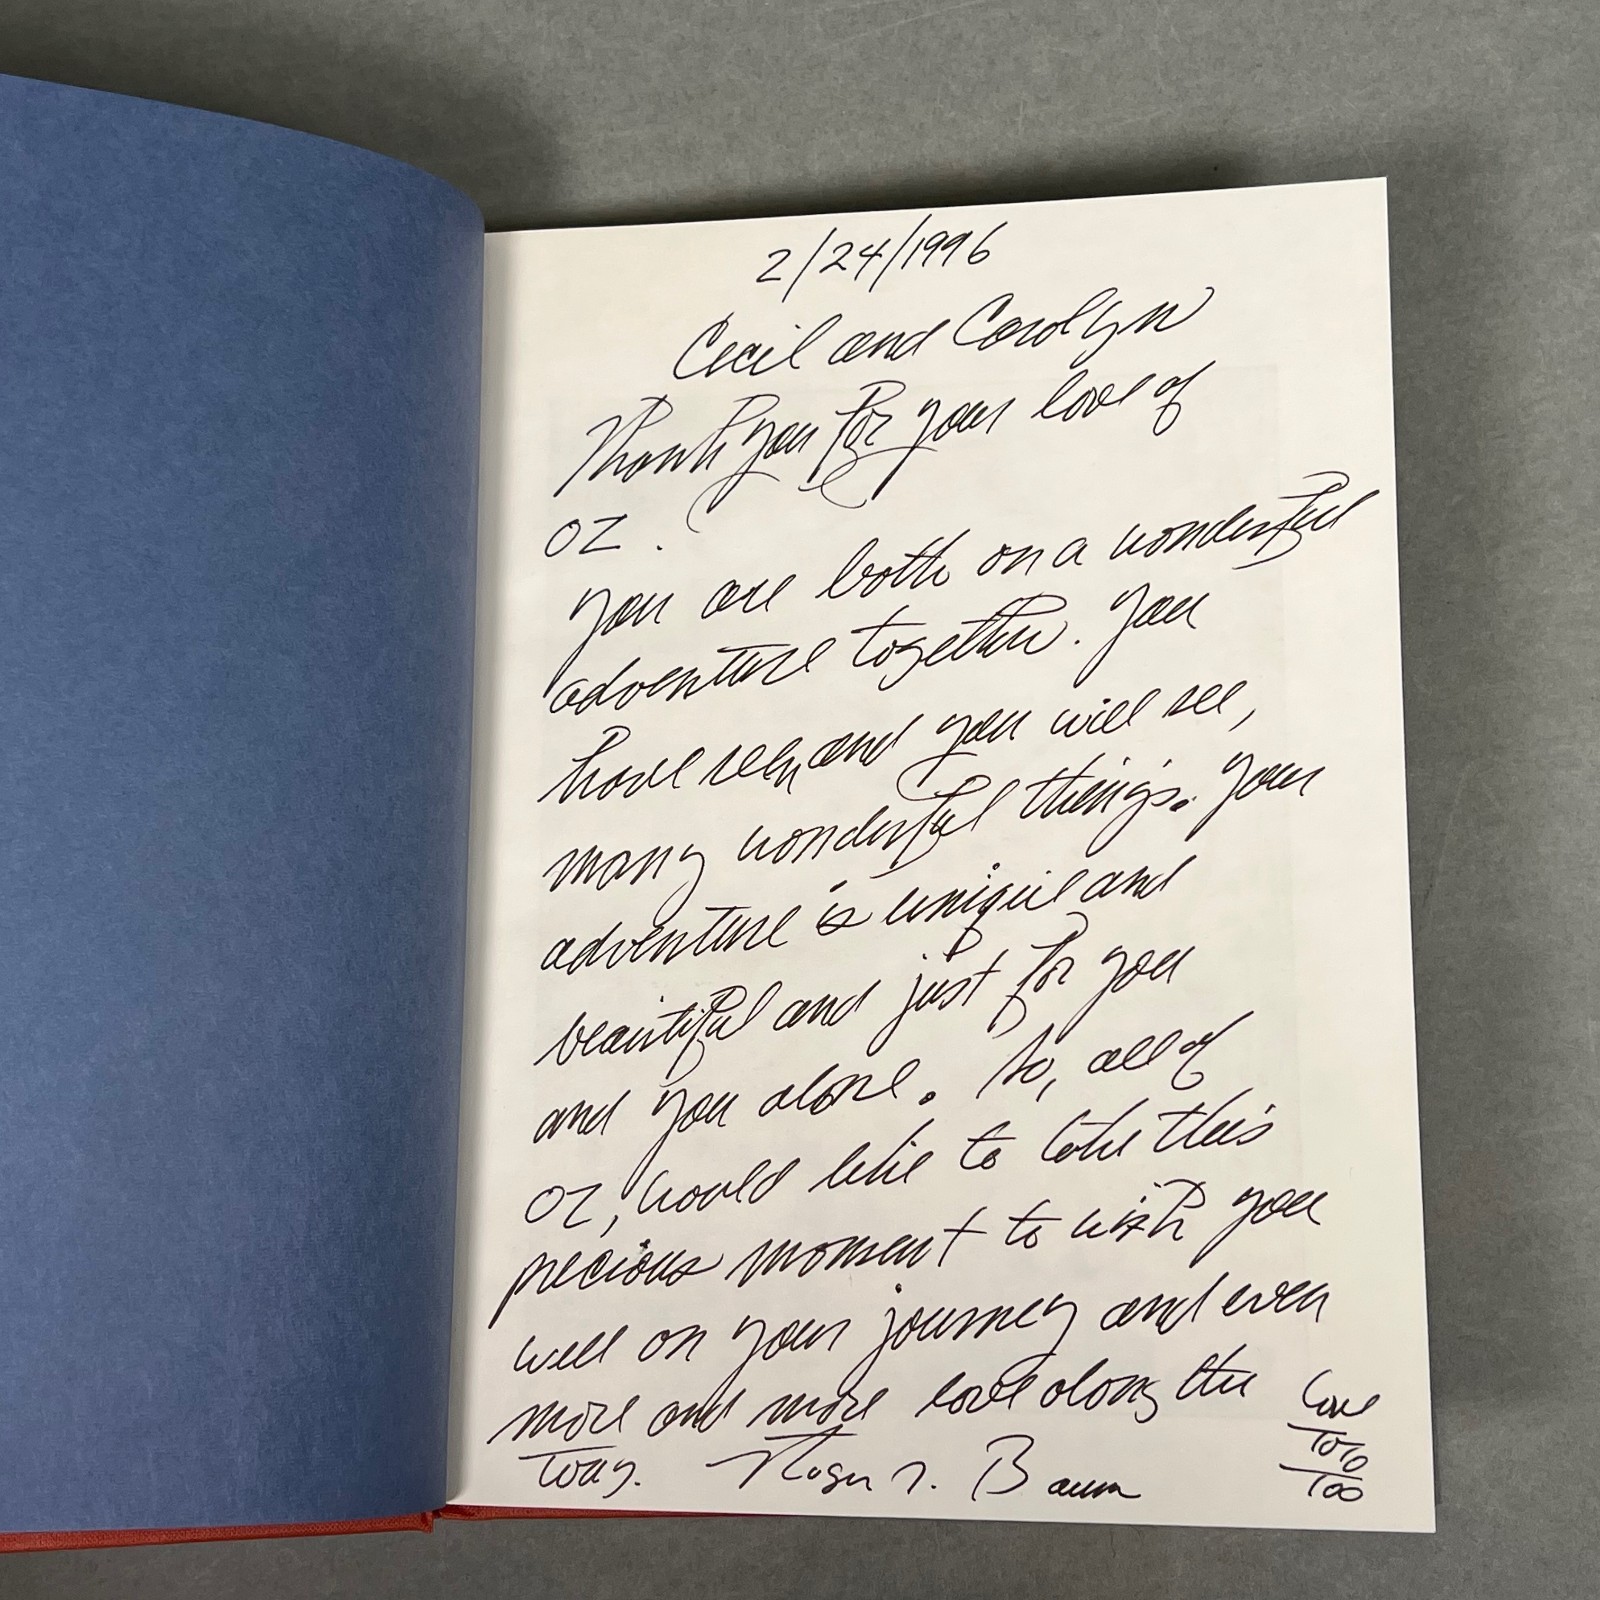 2/24/1996
Cecil and Carolyn
Thank you for your love of
OZ.
You are both on a wonderful
adventure together. You
have seen, and you will see,
many wonderful things. Your
adventure is unique and
beautiful and just for you
and you alone. So, all of
OZ, would like to take this
precious moment to wish you
well on your journey and even
more and more love along the
way. Roger S. Baum
Love
Toto
Too